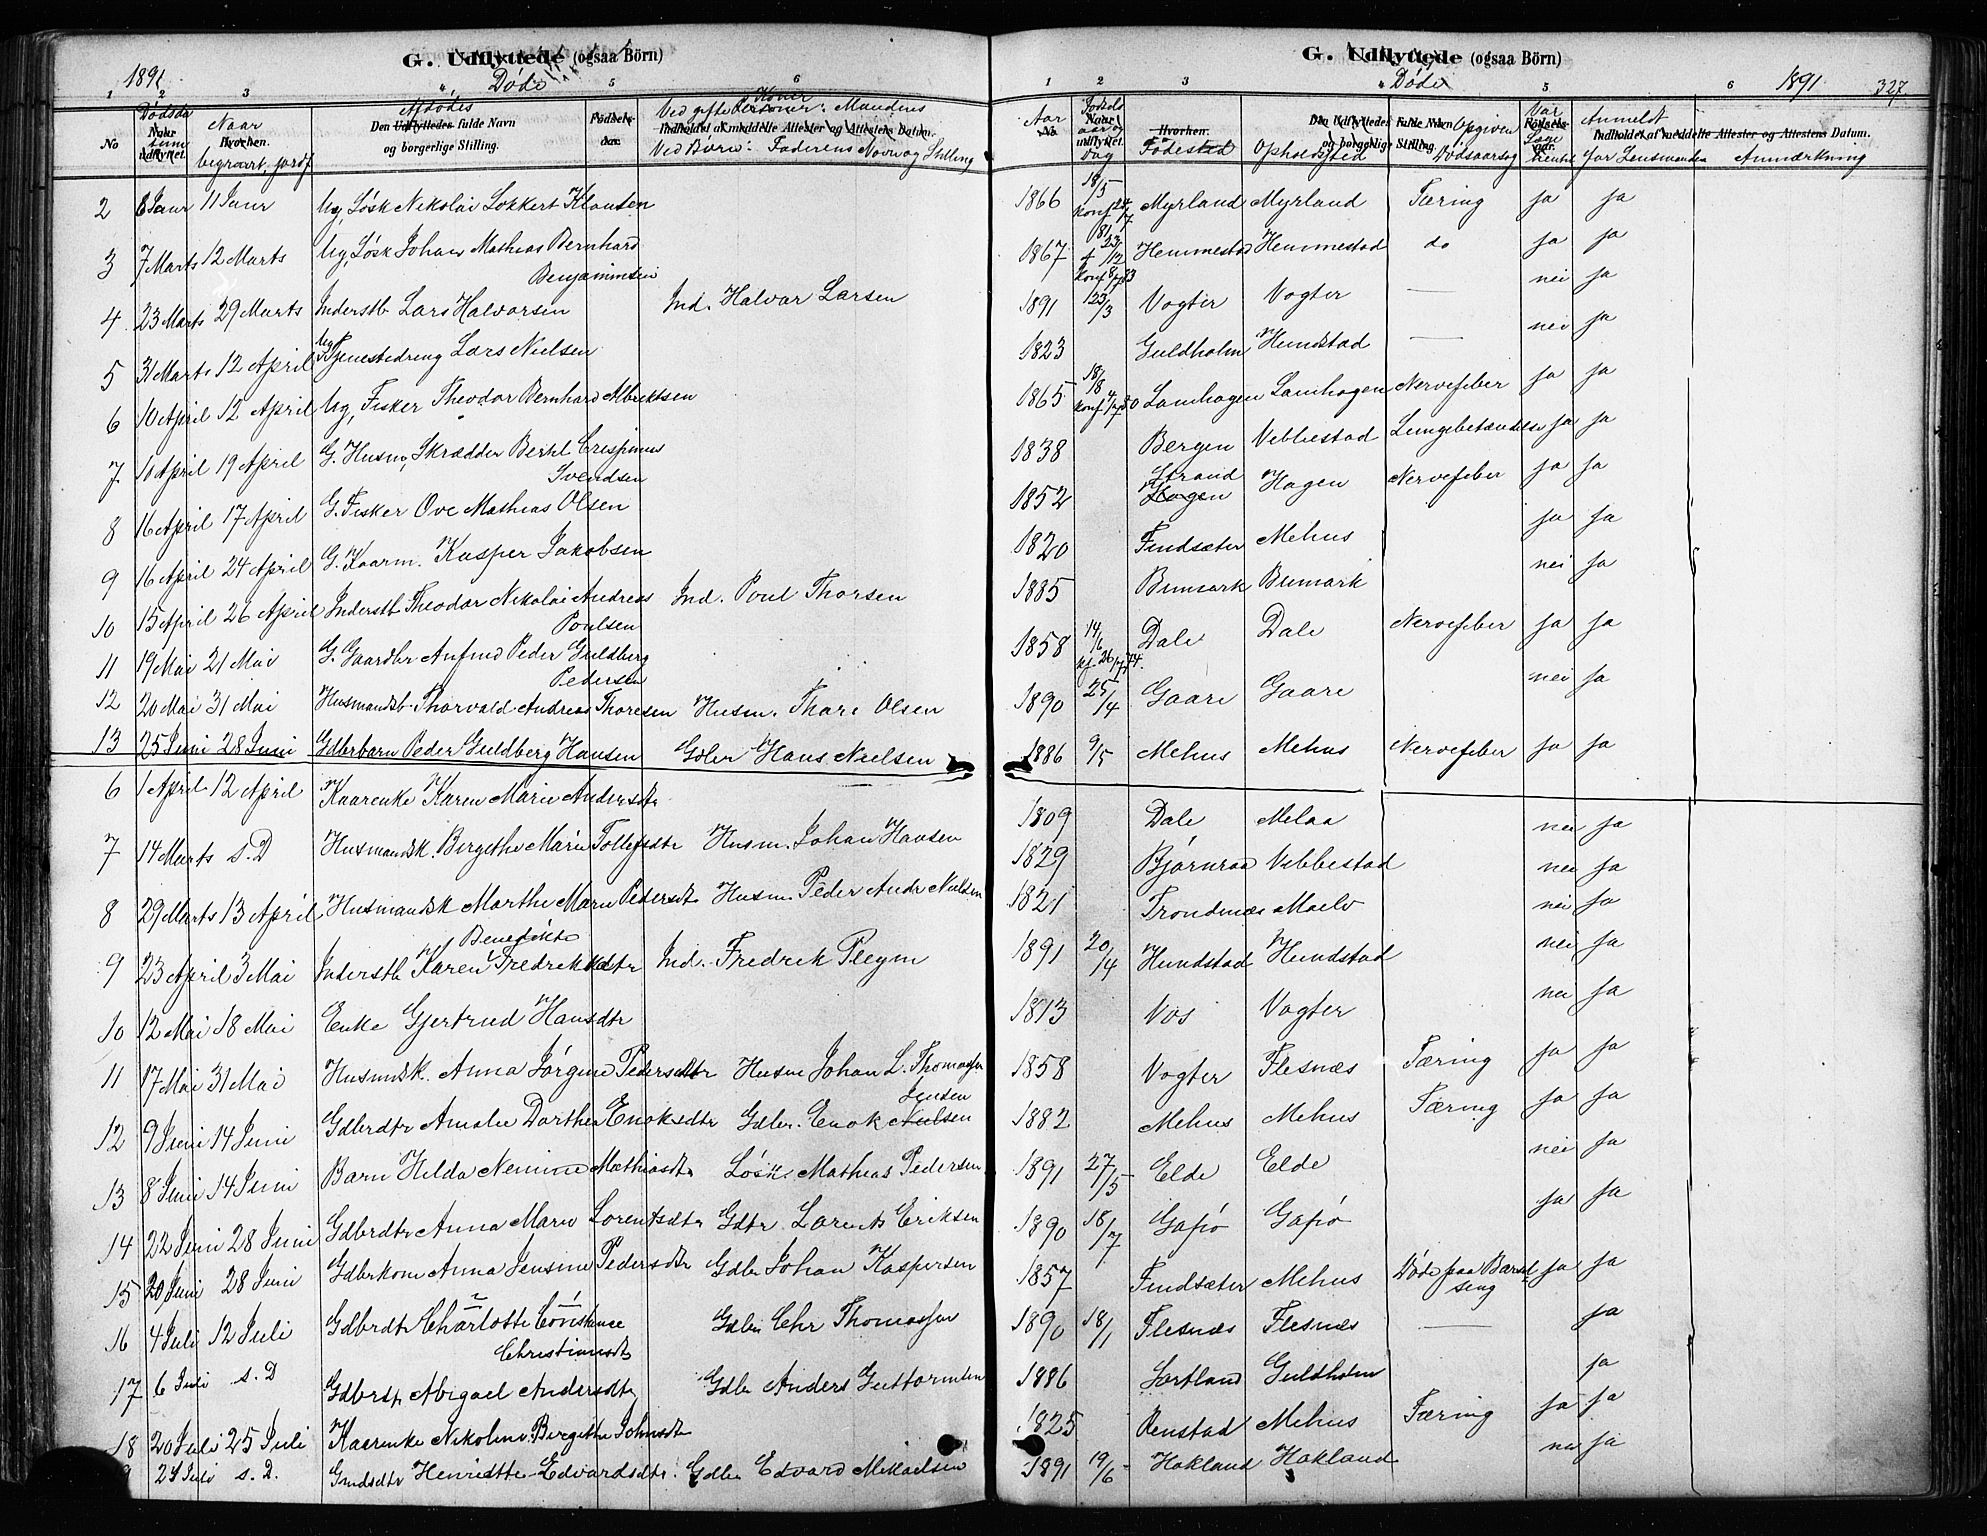 G. Udflyttede (ogsaa Börn)
1891. Døde
1 2 3 4 5 6
No
Dødsda
Naar udflyttet.
Naar
Hvorhen.
begravet, jordf.
Afdødes
Den Udflyttedes fulde Navn
og borgerlige Stilling.
Fødsels-
aar.
Ved gifte Personer: Mandens
Koner
Indholdet af meddelte Attester og Attestens Datum.
Ved Børn: Faderens Navn og Stilling
2 8 Janr 11 Janr Ug, Løsk Nikolai Lokkert Klausen
3 7 Marts 12 Marts Ug, Løsk Johan Mathias Bernhard
Benjaminsen
4 23 Marts 29 Marts Inderstb Lars Halvorsen Ind. Halvar Larsen
5 31 Marts 12 April Ug Tjenestedreng Lars Nielsen
6 10 April 12 April Ug, Fisker Theodor Bernhard Albriktsen
7 10 April 19 April G. Husm, Skrædder Bertel Crispinus
Svendsen
8 16 April 17 April G. Fisker Ove Mathias Olsen
9 16 April 24 April G. Kaarm. Kasper Jakobsen
10 15 April 26 April Inderstb. Theodor Nikolai Andreas Ind. Poul Thorsen
Poulsen
11 19 Mai 21 Mai G. Gaardbr Anfind Peder Guldberg
Pedersen
12 20 Mai 31 Mai Husmandsb. Thorvald Andreas Thoresen Husm. Thore Olsen
13 25 Juni 28 Juni Gdbrbarn Peder Guldberg Hansen Gdbr Hans Nielsen
6 1 April 12 April Kaarenke Karen Marie Andersdtr
7 14 Marts s. D Husmandsk. Bergethe Marie Tollefsdtr Husm. Johan Hansen
8 29 Marts 13 April Husmandsk Marthe Marie Pedersdtr Husm. Peder Andr Nielsen
Benedikte
9 23 April 3 Mai Inderstb Karen Fredriksdtr Ind. Fredrik Pleym
10 12 Mai 18 Mai Enke Gjertrud Hansdtr
11 17 Mai 31 Mai Husmdsk. Anna Jørgine Pedersdtr Husm Johan L. Thomassen
Jensen
12 9 Juni 14 Juni Gdbrdtr Amalie Dorthea Enoksdtr Gdbr. Enok Nielsen
13 8 Juni 14 Juni Barn Hilda Nemine Mathiasdtr Løsk. Mathias Pedersen
14 22 Juni 28 Juni Gdbrdtr Anna Marie Lorentsdtr Gdbr. Lorents Eriksen
15 20 Juni 28 Juni Gdbrkone Anna Jensine Pedersdtr Gdbr Johan Kaspersen
16 4 Juli 12 Juli Gdbrdtr Charlotte Constanse Gdbr Chr Thomassen
Christiansdtr
17 6 Juli s. D Gdbrdtr Abigael Andersdtr Gdbr Anders Guttormsen
18 20 Juli 25 Juli Kaarenke Nikoline Bergitte Johnsdtr
21 Juli s. D. Henriette Edvardsdtr. Gdbr Edvard Mikaelsen
G. Udflyttede (ogsaa Börn)
Døde 1891. 327
1 2 3 4 5 6
Aar
No.
Fødsels
Naar
aar og
udflyttet.
Dag
Hvorhen.
Fødested
Den Udflyttedes fulde Navn
og borgerlige Stilling.
Opholdssted
Opgiven
Dødsaarsag
Var
Fødsels-
aar.
Anmeldt
Indholdet af meddelte Attester og Attestens Datum.
for Lensmanden Anmærkning
1866 18/5 Konf 24/7 81 Myrland Myrland Tæring ja ja
1867 23/12 Konf 8/7 83 Hemmestad Hemmestad do ja ja
1891 23/3 Vogter Vogter — nei ja
1823 Guldholm Hundstad — nei ja
1865 18/8 Konf 4/7 80 Lamhagen Lamhagen Nervefeber ja ja
1838 Bergen Vebbestad Lungebetændelse ja ja
Strand
1852 Hagen Hagen Nervefeber ja ja
1820 Findsæter Mehus ja ja
1885 Bumark Bumark nei ja
1858 14/6 kf. 26/7 74. Dale Dale Nervefeber ja ja
1890 25/4 Gaare Gaare nei ja
1886 9/5 Mehus Mehus Nervefeber ja ja
1809 Dale Melaa nei ja
1829 Bjørnraa Vebbestad nei ja
1821 Trondenæs Maelv nei ja
1891 20/4 Hundstad Hundstad nei ja
1813 Vos Vogter nei ja
1858 Vogter Flesnæs Tæring ja ja
1882 Mehus Mehus Tæring ja ja
1891 27/5 Elde Elde nei ja
1890 18/7 Gapø Gapø ja ja
1857 Findsæter Mehus Døde paa Barsel ja ja
seng
1890 18/1 Flesnæs Flesnæs — ja
1886 Sortland Guldholm ja
1825 Renstad Mehus Tæring ja ja
1891 19/6 Hokland Hokland nei ja